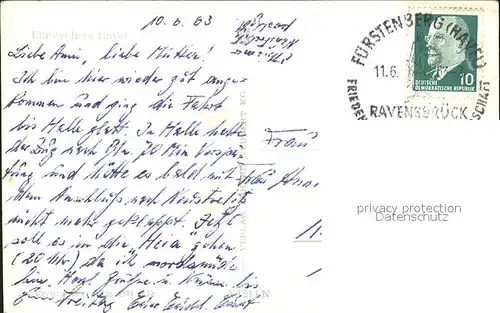 10.6.63
Fürstenberg Havel
Liebe Anni, liebe Mutter!
Ich bin hier wieder gut ange-
kommen und ging die Fahrt
bis Halle glatt. In Halle hatte
der Zug nach Bln. 70 Min Verspä-
tung und hätte es bald mit
dem Anschluß nach Neustrelitz
nicht mehr geklappt. Jetzt
soll es in die "Heia" gehen
(20 Uhr) da ich nordsmüde
bin. Herzl. Grüße u. Küsse bis
Freitag Euer
Frau
FÜRSTENBERG (HAVEL)
11.6.
RAVENSBRÜCK
DEUTSCHE
DEMOKRATISCHE REPUBLIK
10
privacy protection
Datenschutz